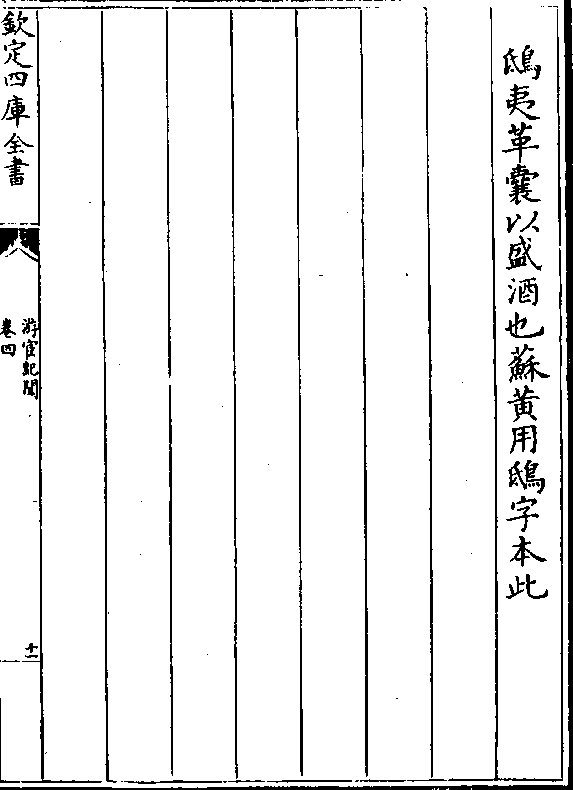 鴟夷革囊以盛酒也蘇黃用鴟字本此
欽定四庫全書
游宦紀聞
卷四
十一